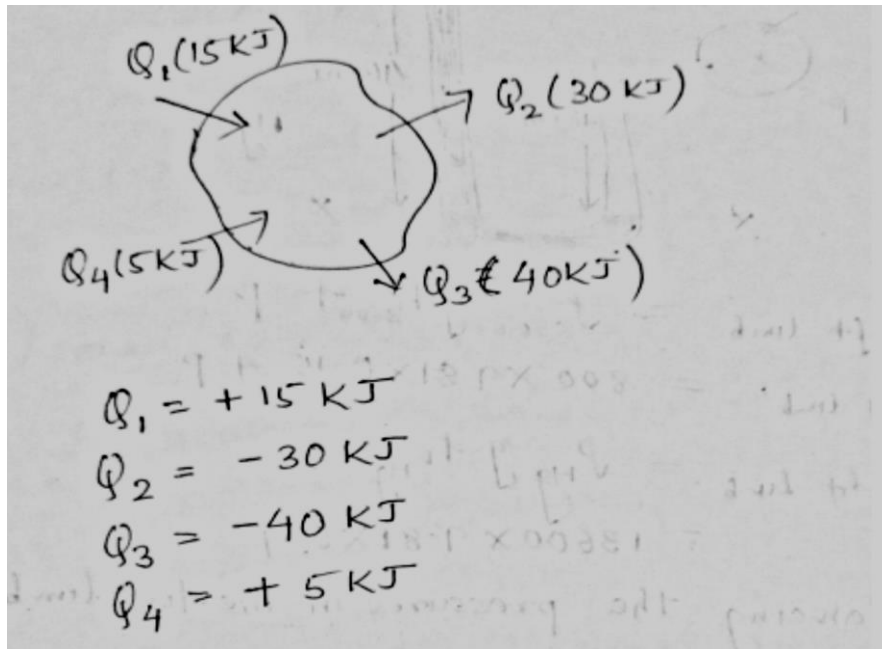 Q₁(15KJ)
Q₂(30 KJ)
Q₄(5KJ)
Q₃(40KJ)
Q₁ = +15 KJ
Q₂ = -30 KJ
Q₃ = -40 KJ
Q₄ = + 5 KJ